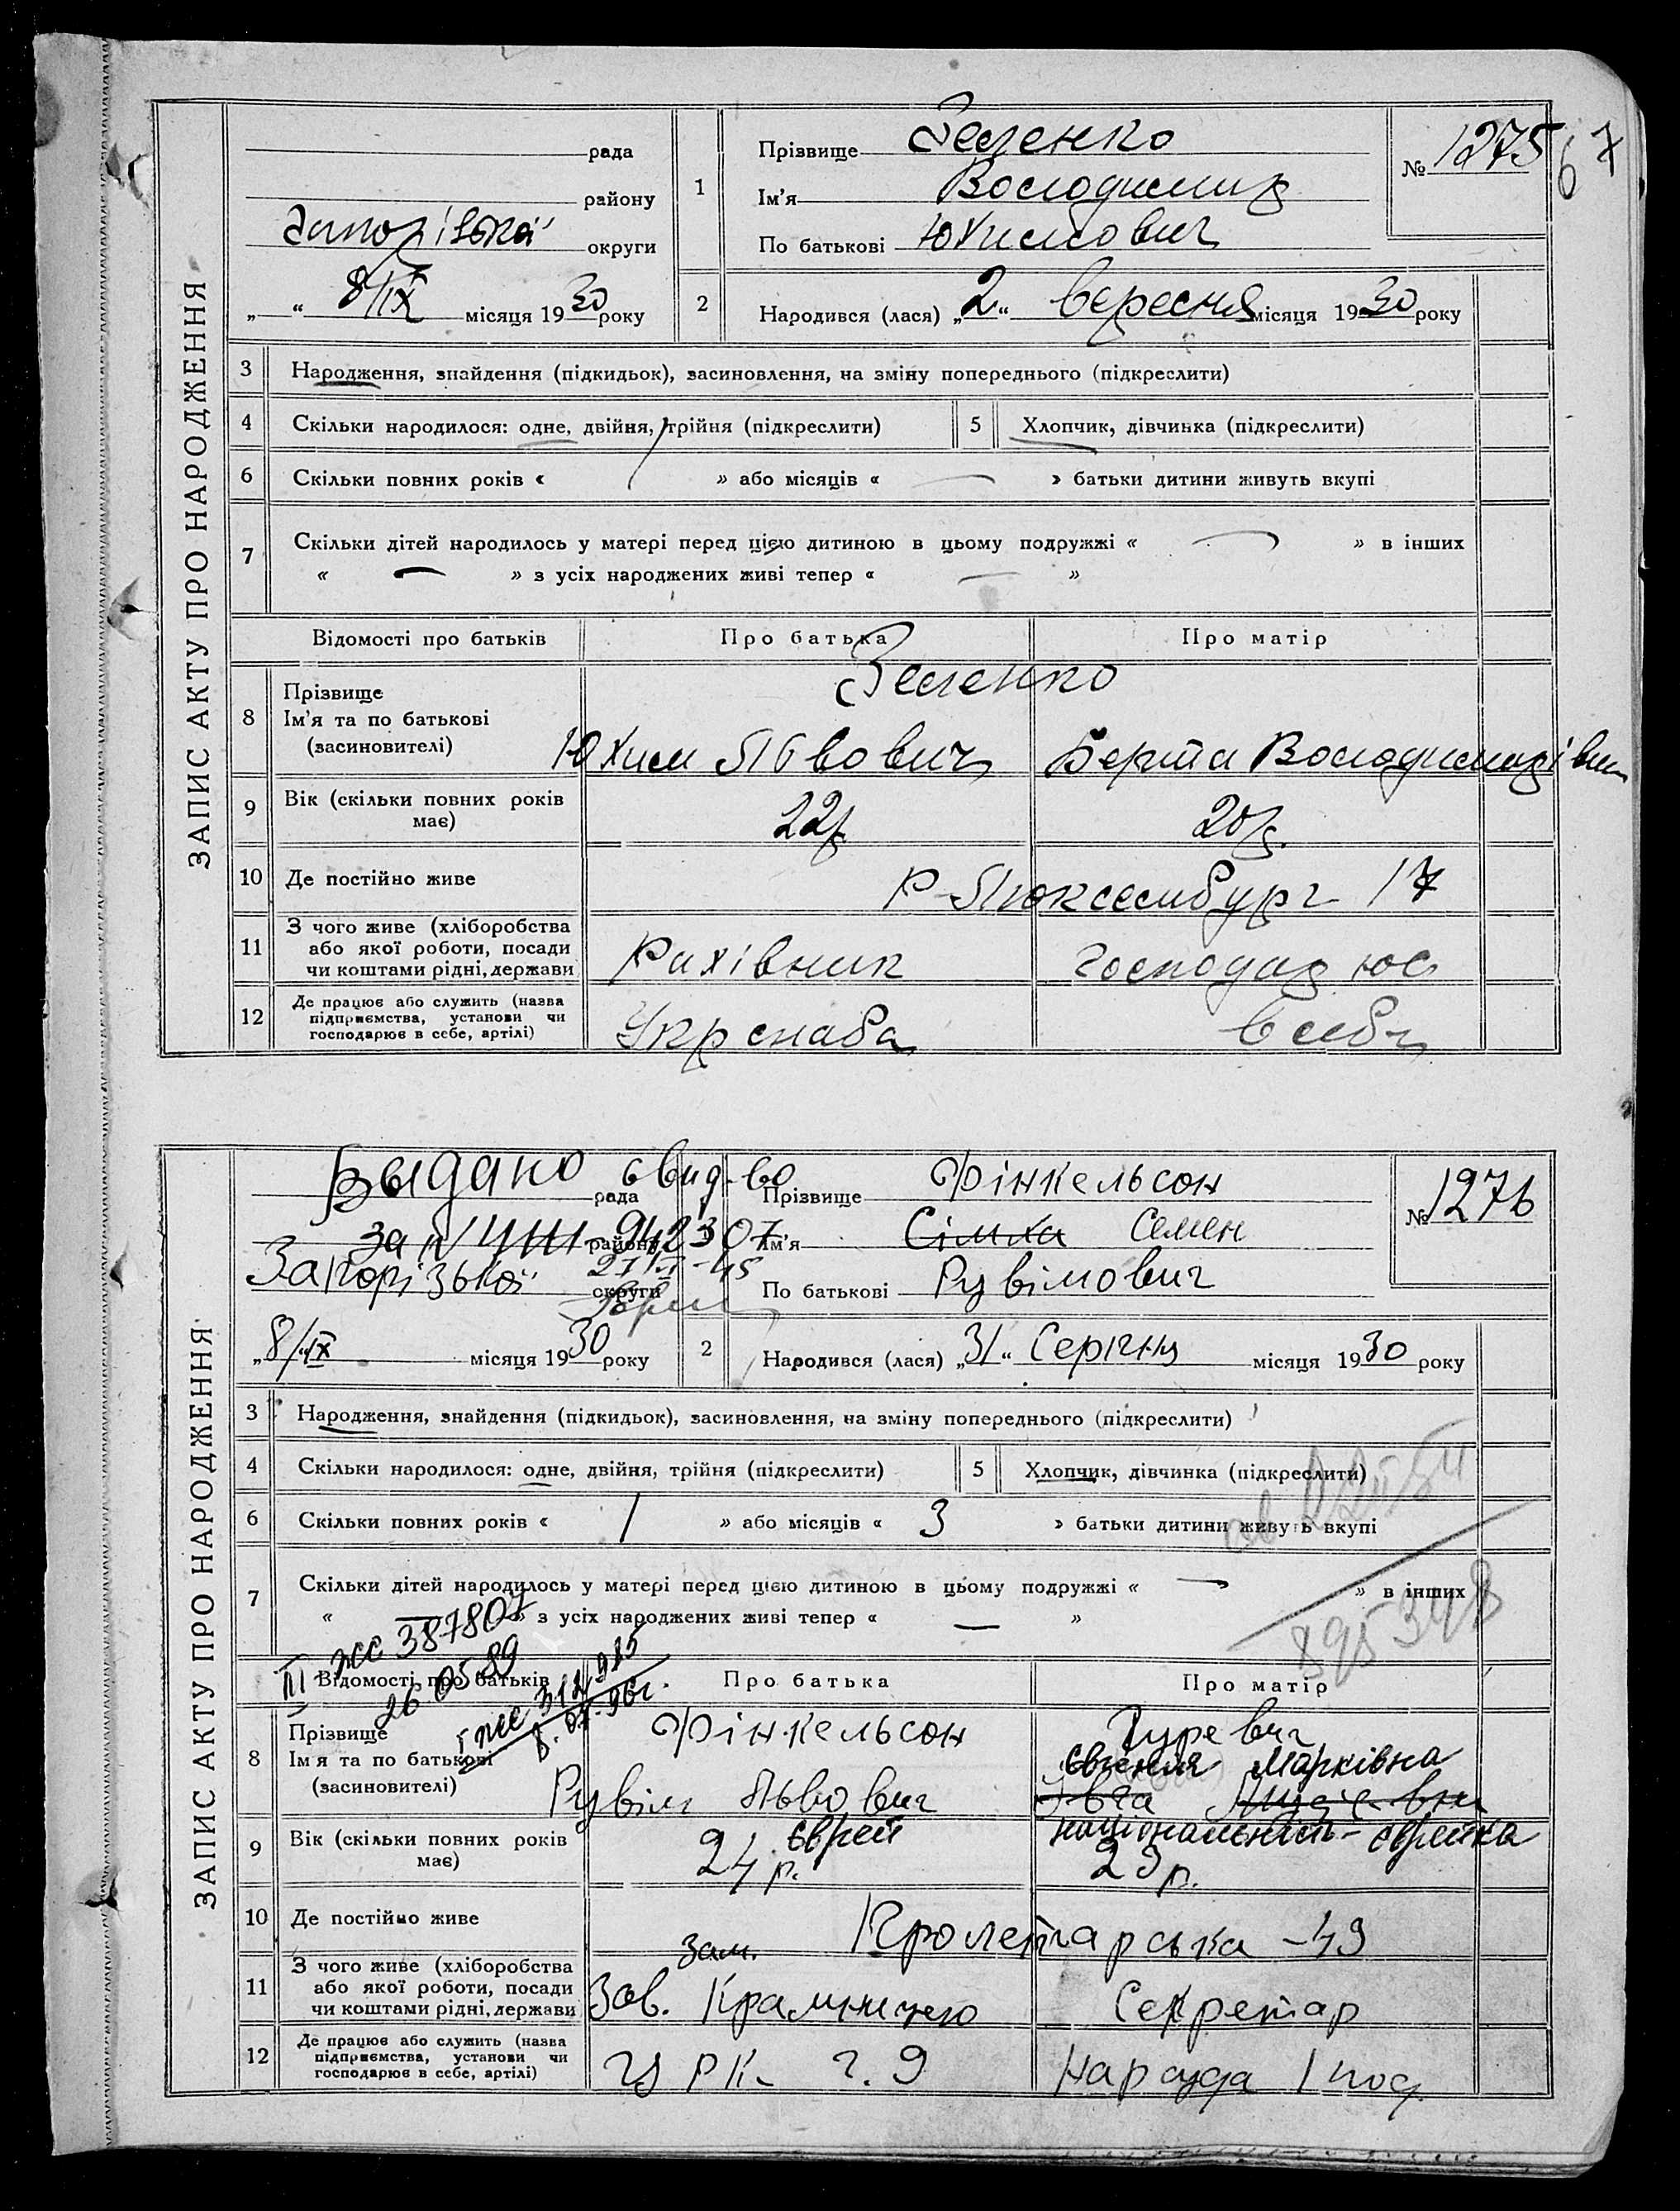 ЗАПИС АКТУ ПРО НАРОДЖЕННЯ
рада
району
Запорізької округи
„ “ 8/IX місяця 1930 року
1
Прізвище Зеленко
Ім'я Володимир
По батькові Юхимович
№ 1275
67
2 Народився (лася) „2“ вересня місяця 1930 року
3 Народження, знайдення (підкидьок), засиновлення, на зміну попереднього (підкреслити)
4 Скільки народилося: одне, двійня, трійня (підкреслити) 5 Хлопчик, дівчинка (підкреслити)
6 Скільки повних років « 1 » або місяців « — » батьки дитини живуть вкупі
7 Скільки дітей народилось у матері перед цією дитиною в цьому подружжі « — » в інших
« — » з усіх народжених живі тепер « — »
Відомості про батьків Про батька Про матір
8 Прізвище Зеленко
Ім'я та по батькові
(засновителі) Юхим Львович Берта Володимирівна
9 Вік (скільки повних років має) 22р. 20р.
10 Де постійно живе Р-Люксембург 17
11 З чого живе (хліборобства
або якої роботи, посади
чи коштами рідні, держави Рахівник господарює
12 Де працює або служить (назва
підприємства, установи чи
господарює в себе, артілі) Укрснаба в себе
ЗАПИС АКТУ ПРО НАРОДЖЕННЯ
Выдано свид-во
рада
за № 942307
району
27 45
Запорізької округи
„8/IX“ місяця 1930 року
Прізвище Фінкельсон
Ім'я Сімха Семен
По батькові Рувімович
№ 1276
2 Народився (лася) „31“ Серпня місяця 1930 року
3 Народження, знайдення (підкидьок), засиновлення, на зміну попереднього (підкреслити)
4 Скільки народилося: одне, двійня, трійня (підкреслити) 5 Хлопчик, дівчинка (підкреслити)
6 Скільки повних років « 1 » або місяців « 3 » батьки дитини живуть вкупі
7 Скільки дітей народилось у матері перед цією дитиною в цьому подружжі « — » в інших
« — » з усіх народжених живі тепер « — »
895348
III ЖС 387807
26 05 89
ЖС 312985
8.07.96г.
Відомості про батьків Про батька Про матір
8 Прізвище Фінкельсон Гуревич
Ім'я та по батькові Євгенія Марківна
(засновителі) Рувім Львович
9 Вік (скільки повних років має) 24 р. Єврей національність - Єврейка 23 р.
10 Де постійно живе Пролетарська - 49
11 З чого живе (хліборобства
або якої роботи, посади
чи коштами рідні, держави зам. Зав. Крамницею Секретар
12 Де працює або служить (назва
підприємства, установи чи
господарює в себе, артілі) ЦРК. ч. 9 Нарсуда 1